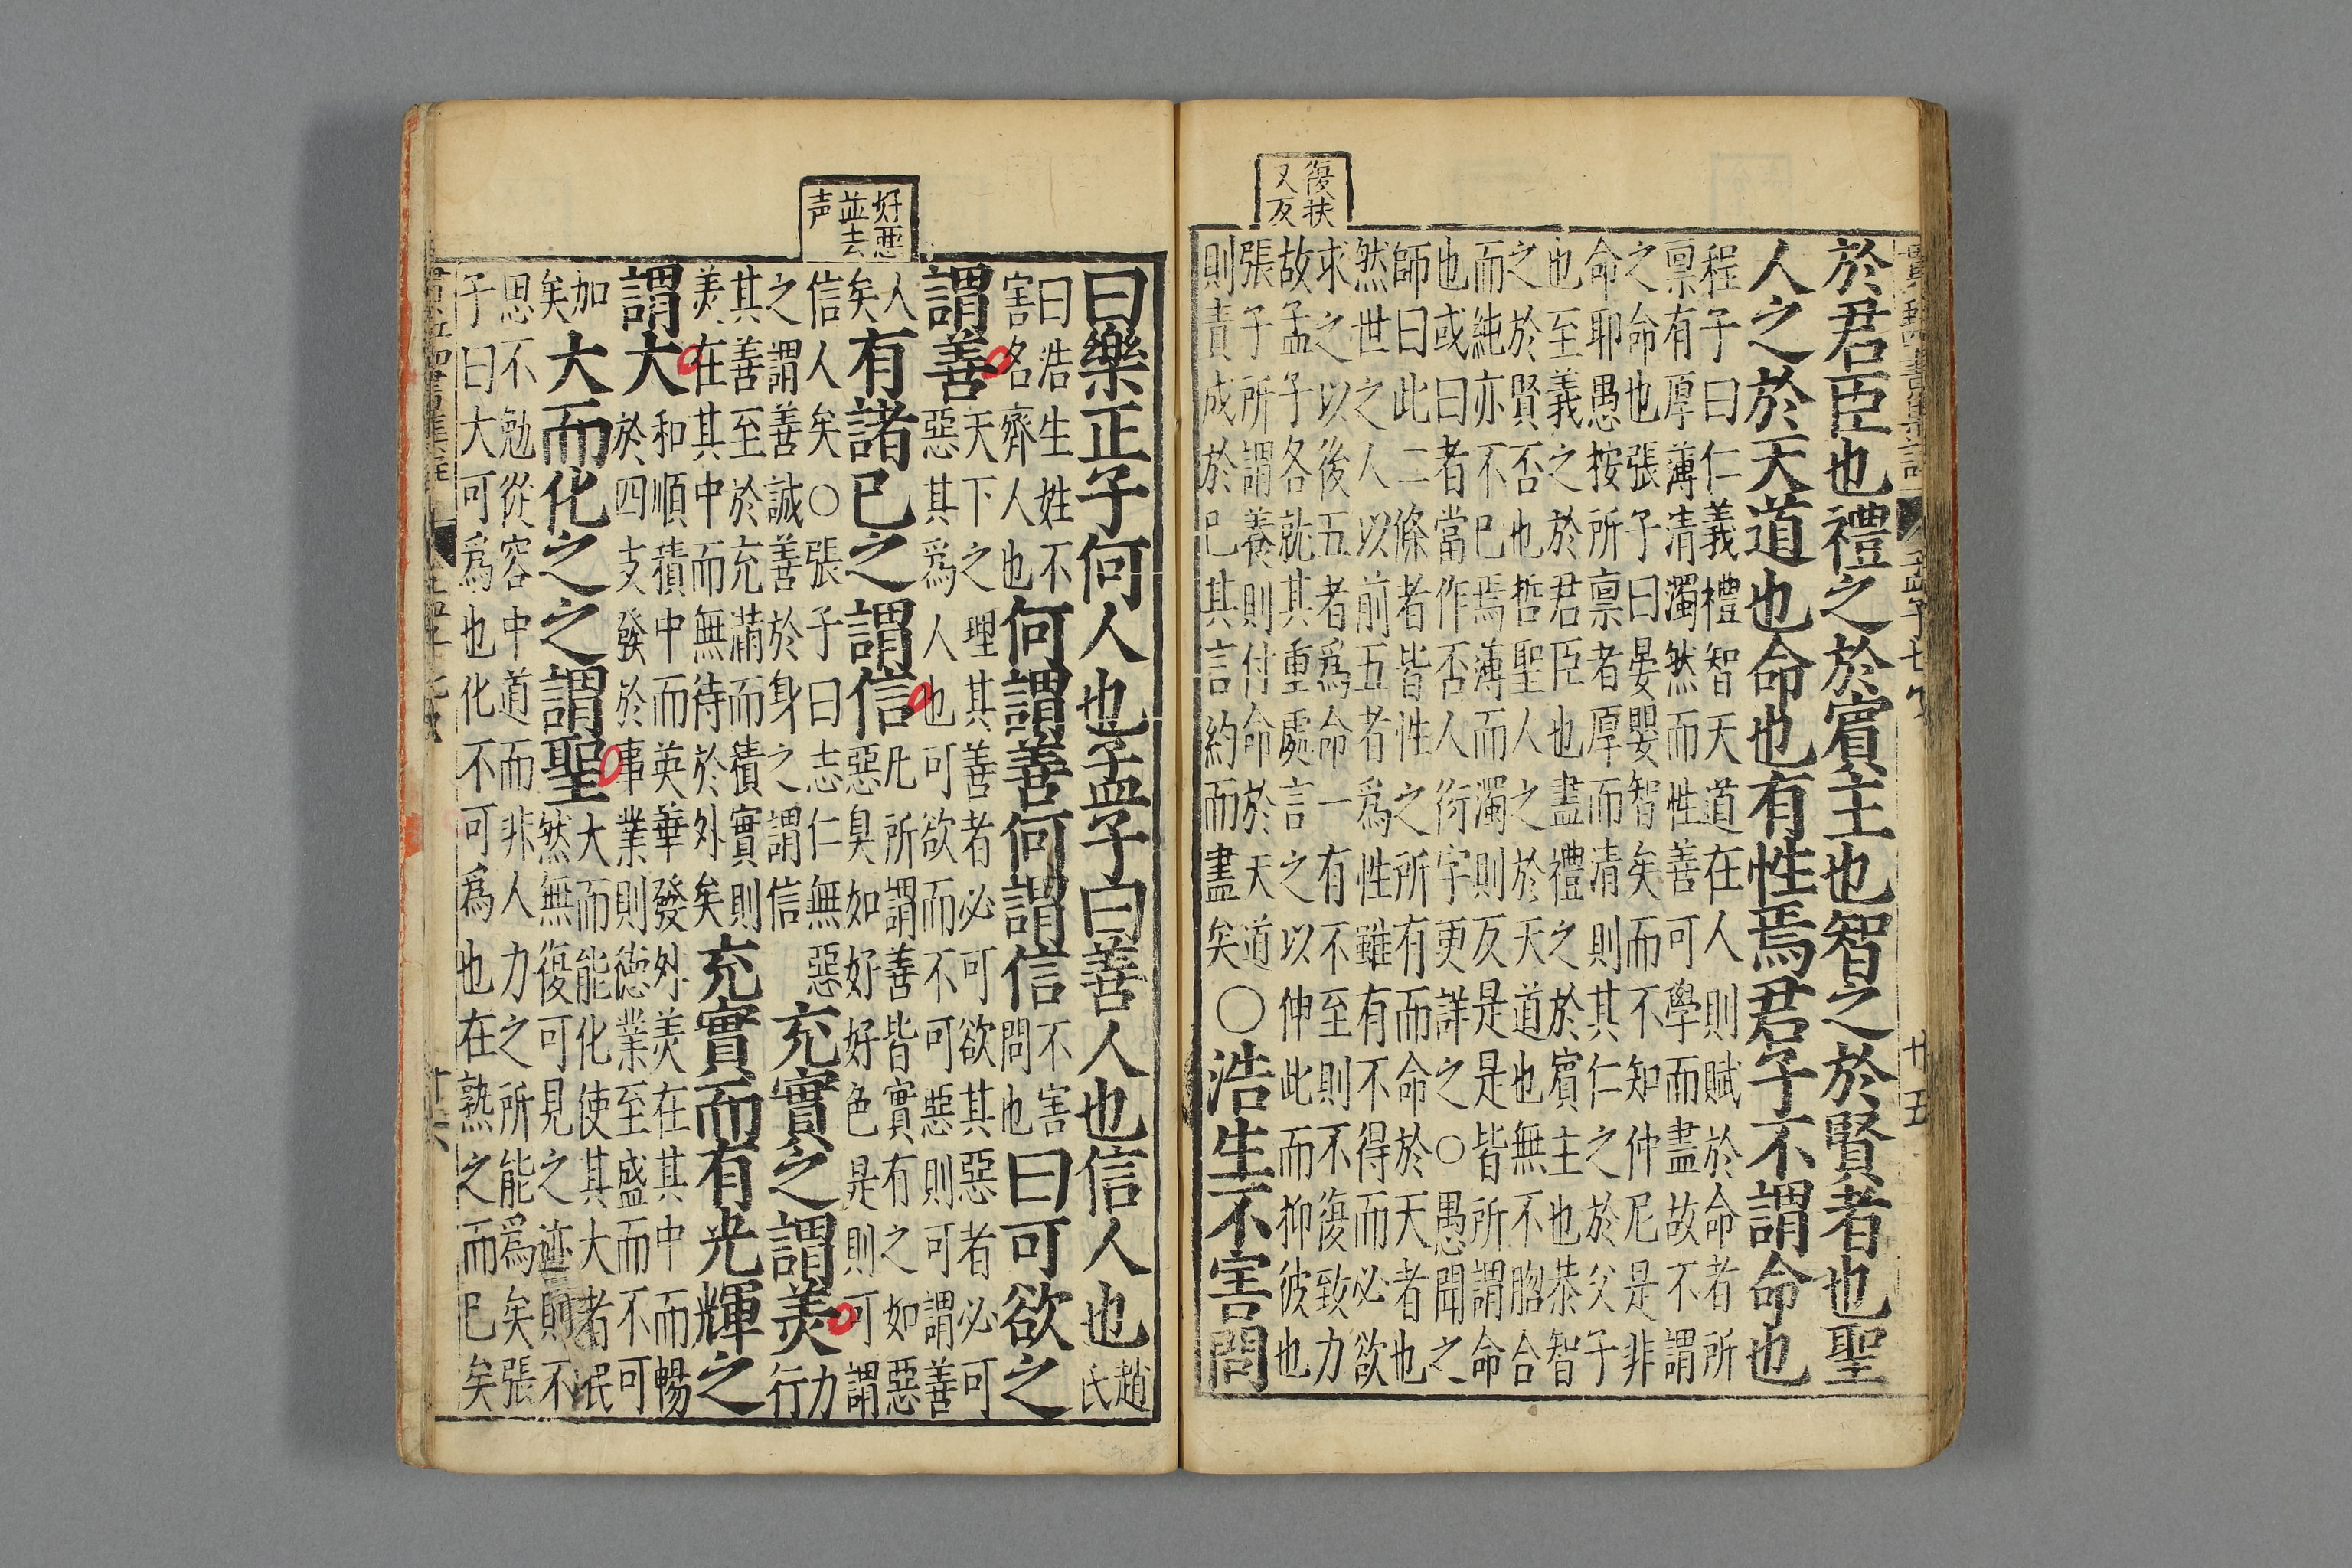 復扶
又反
孟子七
十五
於君臣也禮之於賓主也智之於賢者也聖
人之於天道也命也有性焉君子不謂命也
程子曰仁義禮智天道在人則賦於命者所
禀有厚薄清濁然而性善可學而盡故不謂
之命也張子曰晏嬰智矣而不知仲尼是非
命耶愚按所禀者厚而清則其仁之於父子
也至義之於君臣也盡禮之於賓主也恭智
之於賢否也哲聖人之於天道也無不脗合
而純亦不已焉薄而濁則反是是皆所謂命
也或曰者當作否人衍字更詳之○愚聞之
師曰此二條者皆性之所有而命於天者也
然世之人以前五者爲性雖有不得而必欲
求之以後五者爲命一有不至則不復致力
故孟子各就其重處言之以伸此而抑彼也
張子所謂養則付命於天道
則責成於己其言約而盡矣○
浩生不害問
好惡
並去
声
曰樂正子何人也孟子曰善人也信人也
趙
氏
曰浩生姓不
害名齊人也
何謂善何謂信
不害
問也
曰可欲之
謂善
天下之理其善者必可欲其惡者必可
惡其爲人也可欲而不可惡則可謂善
人
矣
有諸已之謂信
凡所謂善皆實有之如惡
惡臭如好好色是則可謂
信人矣○張子曰志仁無惡
之謂善誠善於身之謂信
充實之謂美
力
行
其善至於充滿而積實則
美在其中而無待於外矣
充實而有光輝之
謂大
和順積中而英華發外美在其中而暢
於四支發於事業則德業至盛而不可
加
矣
大而化之之謂聖
大而能化使其大者泯
然無復可見之迹則不
思不勉從容中道而非人力之所能爲矣張
子曰大可爲也化不可爲也在熟之而已矣